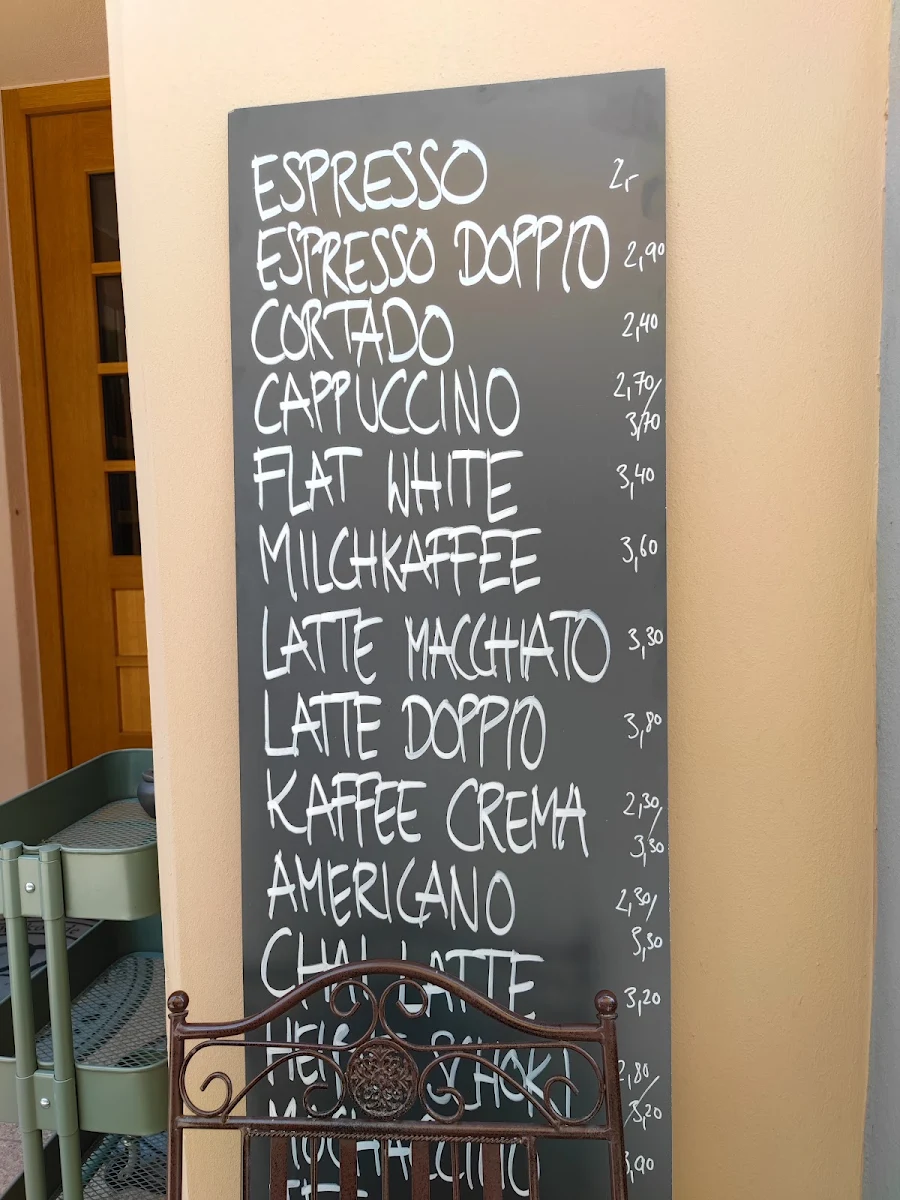 ESPRESSO 2,-
ESPRESSO DOPPIO 2,90
CORTADO 2,40
CAPPUCCINO 2,70/
3,70
FLAT WHITE 3,40
MILCHKAFFEE 3,60
LATTE MACCHIATO 3,30
LATTE DOPPIO 3,80
KAFFEE CREMA 2,30/
3,30
AMERICANO 2,30/
3,30
CHAI LATTE 3,20
HEIße SCHOKI ,80/
3,20
MOCHACCINO 3,90